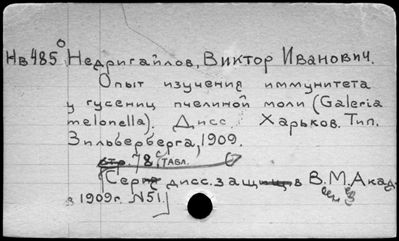 Нв485° Недригайлов, Виктор Иванович.
Опыт изучения иммунитета
у гусениц пчелиной моли (Galeria
melonella). Дисс. Харьков. Тип.
Зильберберга, 1909.
стр. 78 с табл.
[Серия дисс. защищ в В.М. Акад.
в 1909г. N51.]